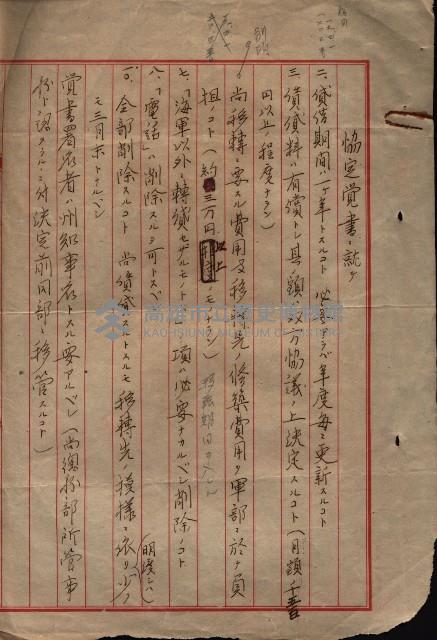 協定覚書ニ就テ
二、貸借期間ハ一ケ年トスルコト 必要アラバ年度毎ニ更新スルコト
三、賃貸料ハ有償トシ其額双方協議ノ上決定スルコト(月額千
円以上ノ程度ナラン)
尚移転ニ要スル費用及移転先ノ修築費用ヲ軍部ニ於テ負
担ノコト(約三万円以上ノモヨウナラン)
七、「海軍以外ニ転貸セザルモノトス」ノ項ハ必要ナカルベシ削除ノコト
八、「電話」ハ削除スルヲ可トスベシ
一〇、全部削除スルコト 尚賃貸スルモ移転先ノ模様ニ依リ少ノ
(明渡シハ)
モ三月末トナルベシ
覚書署名者ハ州知事名トスル要アルベシ(尚総務部所管事
務ト認ラルルニ付決定前同部ニ移管スルコト)
高雄市立歷史博物館
KAOHSIUNG MUSEUM OF HISTORY